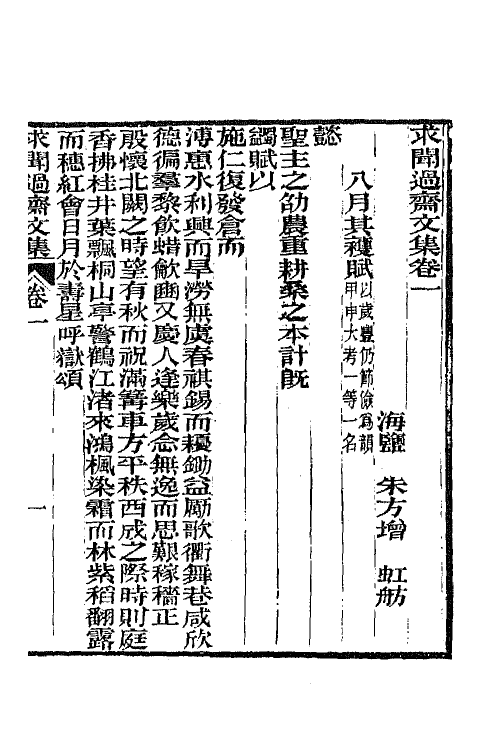 求聞過齋文集卷一
海鹽 朱方增 虹舫
八月其穫賦以歲豐仍節儉為韻甲申大考一等一名
懿
聖主之劭農重耕桑之本計旣
蠲賦以
施仁復發倉而
溥惠水利興而旱澇無虞春祺錫而耰鋤益勵歌衢舞巷咸欣
德徧羣黎飲蜡龡豳又慶人逢樂歲念無逸而思艱稼穡正
殷懷北闕之時望有秋而祝滿篝車方平秩西成之際時則庭
香拂桂井葉飄桐山亭警鶴江渚來鴻楓染霜而林紫稻翻露
而穗紅會日月於壽星呼嶽頌
求聞過齋文集 卷一
一